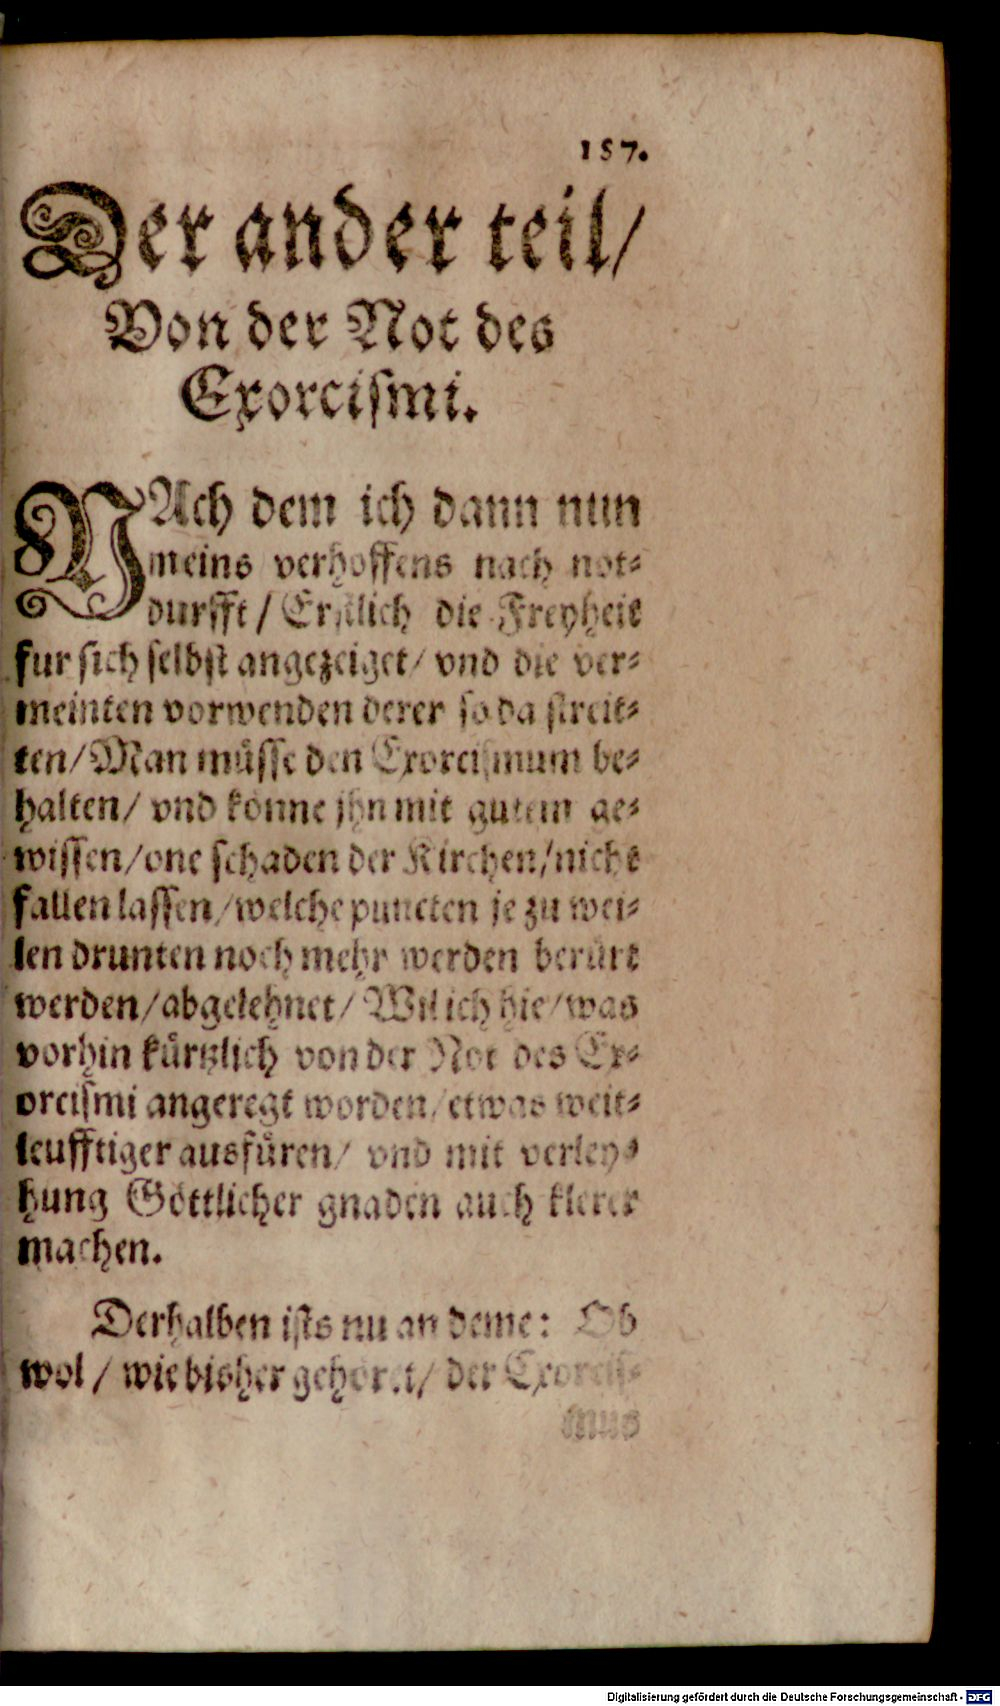 157.
Der ander teil/
Von der Not des
Exorciſmi.
NAch dem ich dann nun
meins verhoffens nach not⸗
durfft / Erſtlich die Freyheit
fur ſich ſelbſt angezeiget/ vnd die ver⸗
meinten vorwenden derer ſo da ſtreit⸗
ten/ Man muͤſſe den Exorciſmum be⸗
halten/ vnd koͤnne jhn mit gutem ge⸗
wiſſen/ one ſchaden der Kirchen/ nicht
fallen laſſen/ welche puncten je zu wei⸗
len drunten noch mehr werden beruͤrt
werden/ abgelehnet/ Wil ich hie/ was
vorhin kuͤrtzlich von der Not des Ex⸗
orciſmi angeregt worden/ etwas weit⸗
leufftiger ausfuͤren/ vnd mit verley⸗
hung Goͤttlicher gnaden auch klerer
machen.
Derhalben iſts nu an deme: Ob
wol / wie bisher gehoͤret/ der Exorciſ⸗
mus
Digitalisierung gefördert durch die Deutsche Forschungsgemeinschaft - DFG